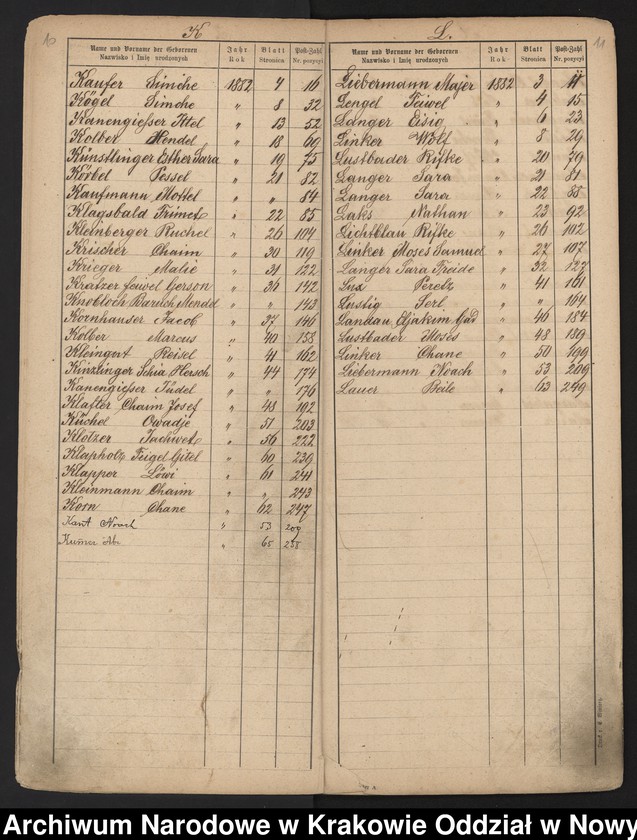 10
K
Name und Vorname der Geborenen Jahr Blatt Post-Zahl
Nazwisko i Imię urodzonych Rok Stronica Nr. pozycyi
Kaufer Simche 1882 4 16
Kögel Simche " 8 32
Kanengiesser Ittel " 13 52
Kolber Hendel " 18 69
Künstlinger Esther Sara " 19 75
Körbel Pessel " 21 82
Kaufmann Mottel " " 84
Klagsbald Frimet " 22 85
Kleinberger Ruchel " 26 104
Krischer Chaim " 30 119
Krieger Malie " 31 122
Kratzer Feiwel Gerson " 36 142
Knobloch Baruch Mendel " " 143
Kornhauser Jacob " 37 146
Kolber Marcus " 40 158
Kleingort Reisel " 41 162
Kinzlinger Schia Hersch " 44 174
Kanengiesser Jüdel " " 176
Klafter Chaim Josef " 48 192
Küchel Owadje " 51 203
Klotzer Jachwet " 56 222
Klapholz Feigel Gitel " 60 239
Klapper Löwi " 61 241
Kleinmann Chaim " " 243
Korn Chane " 62 247
Kant " 53 209
" 65
L.
11
Name und Vorname der Geborenen Jahr Blatt Post-Zahl
Nazwisko i Imię urodzonych Rok Stronica Nr. pozycyi
Liebermann Majer 1882 3 11
Lengel Feiwel " 4 15
Langer Eisig " 6 23
Linker Wolf " 8 29
Lustbader Rifke " 20 79
Langer Sara " 21 81
Langer Sara " 22 88
Laks Nathan " 23 92
Lichtblau Rifke " 26 102
Linker Moses Samuel " 27 107
Langer Sara Freide " 32 127
Lux Peretz " 41 161
Lustig Serl " " 164
Landau Eljakim Gad " 46 184
Lustbader Moses " 48 189
Linker Chane " 50 199
Liebermann Noach " 53 209
Lauer Beile " 63 249
Archiwum Narodowe w Krakowie Oddział w Nowy